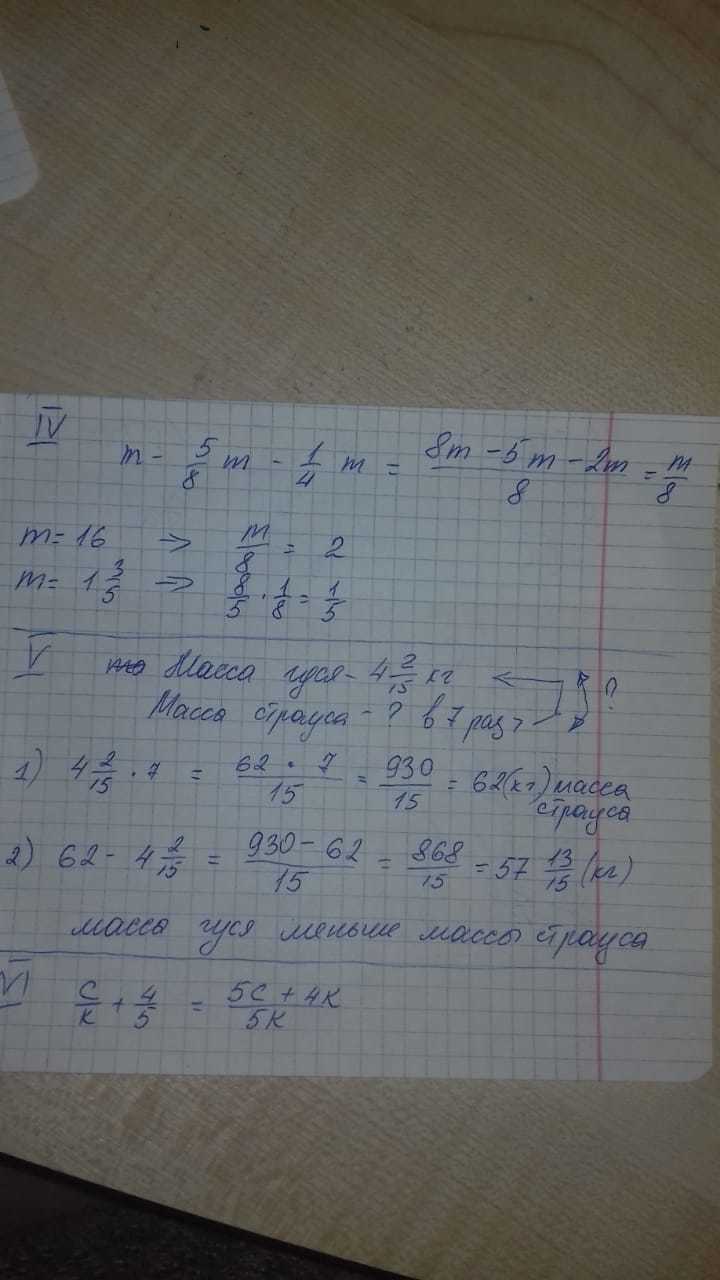 IV
m - 5/8 m - 1/4 m = (8m - 5m - 2m)/8 = m/8
m = 16 => m/8 = 2
m = 1 3/5 => 8/5 · 1/8 = 1/5
V Масса гуся - 4 2/15 кг ?
Масса страуса - ? в 7 раз >
1) 4 2/15 · 7 = (62 · 7)/15 = 930/15 = 62(кг) масса
страуса
2) 62 - 4 2/15 = (930 - 62)/15 = 868/15 = 57 13/15 (кг)
масса гуся меньше массы страуса
VI c/k + 4/5 = (5c + 4k)/5k